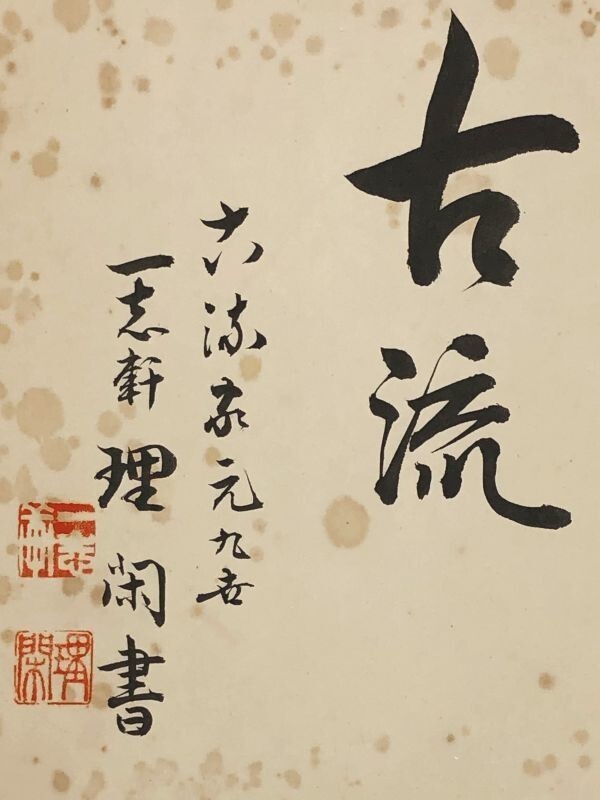 古流
古流家元九世
一志軒理閑書
理閑